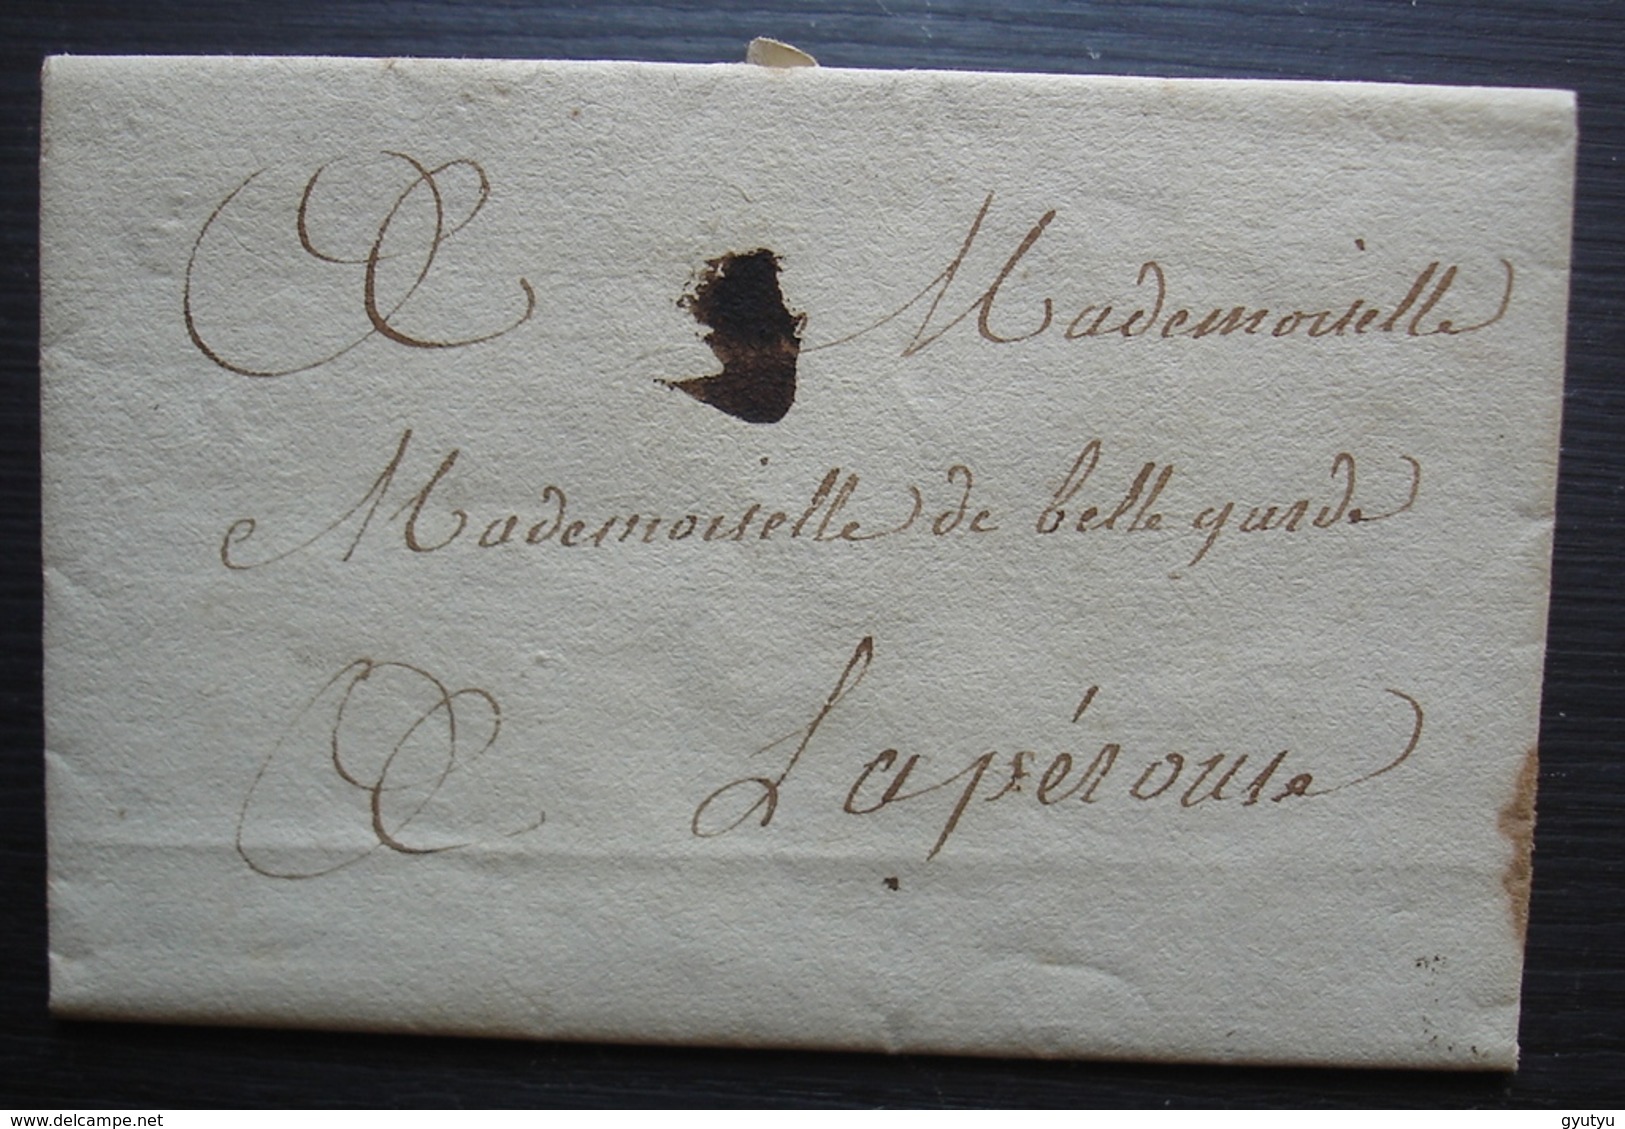 A Mademoiselle
Mademoiselle de belle garde
A Lapérouse
delcampe.net
gyutyu